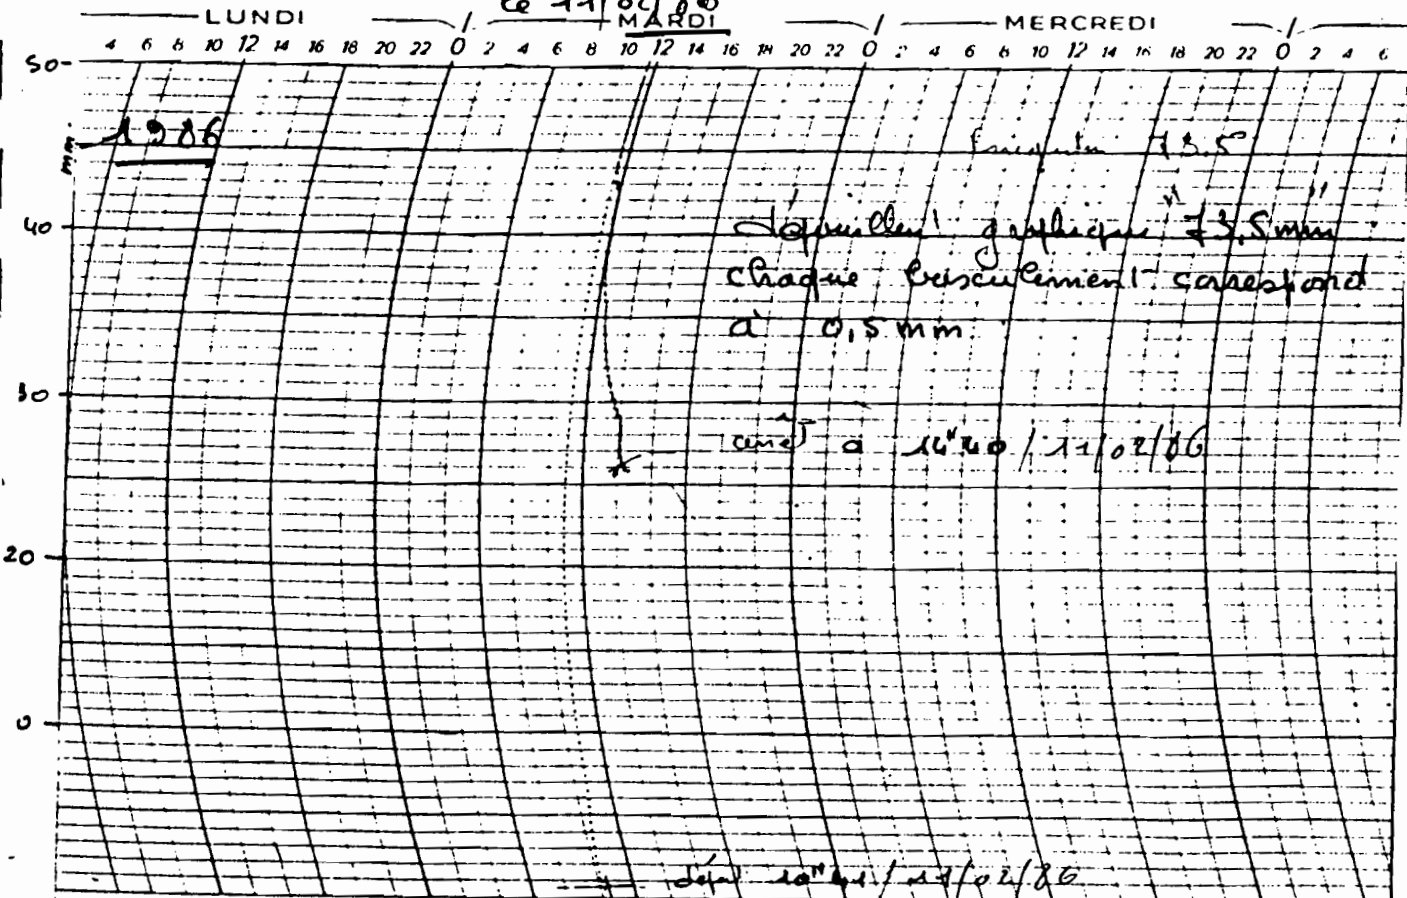 le 11/02/86
LUNDI MARDI MERCREDI
4 6 8 10 12 14 16 18 20 22 0 2 4 6 8 10 12 14 16 18 20 22 0 2 4 6 8 10 12 14 16 18 20 22 0 2 4 6
50
1986
mm
73.5
40
dépouillent graphique "73,5mm"
chaque basculement correspond
à 0,5 mm
30
arrêt à 14H40/11/02/86
20
0
11/02/86